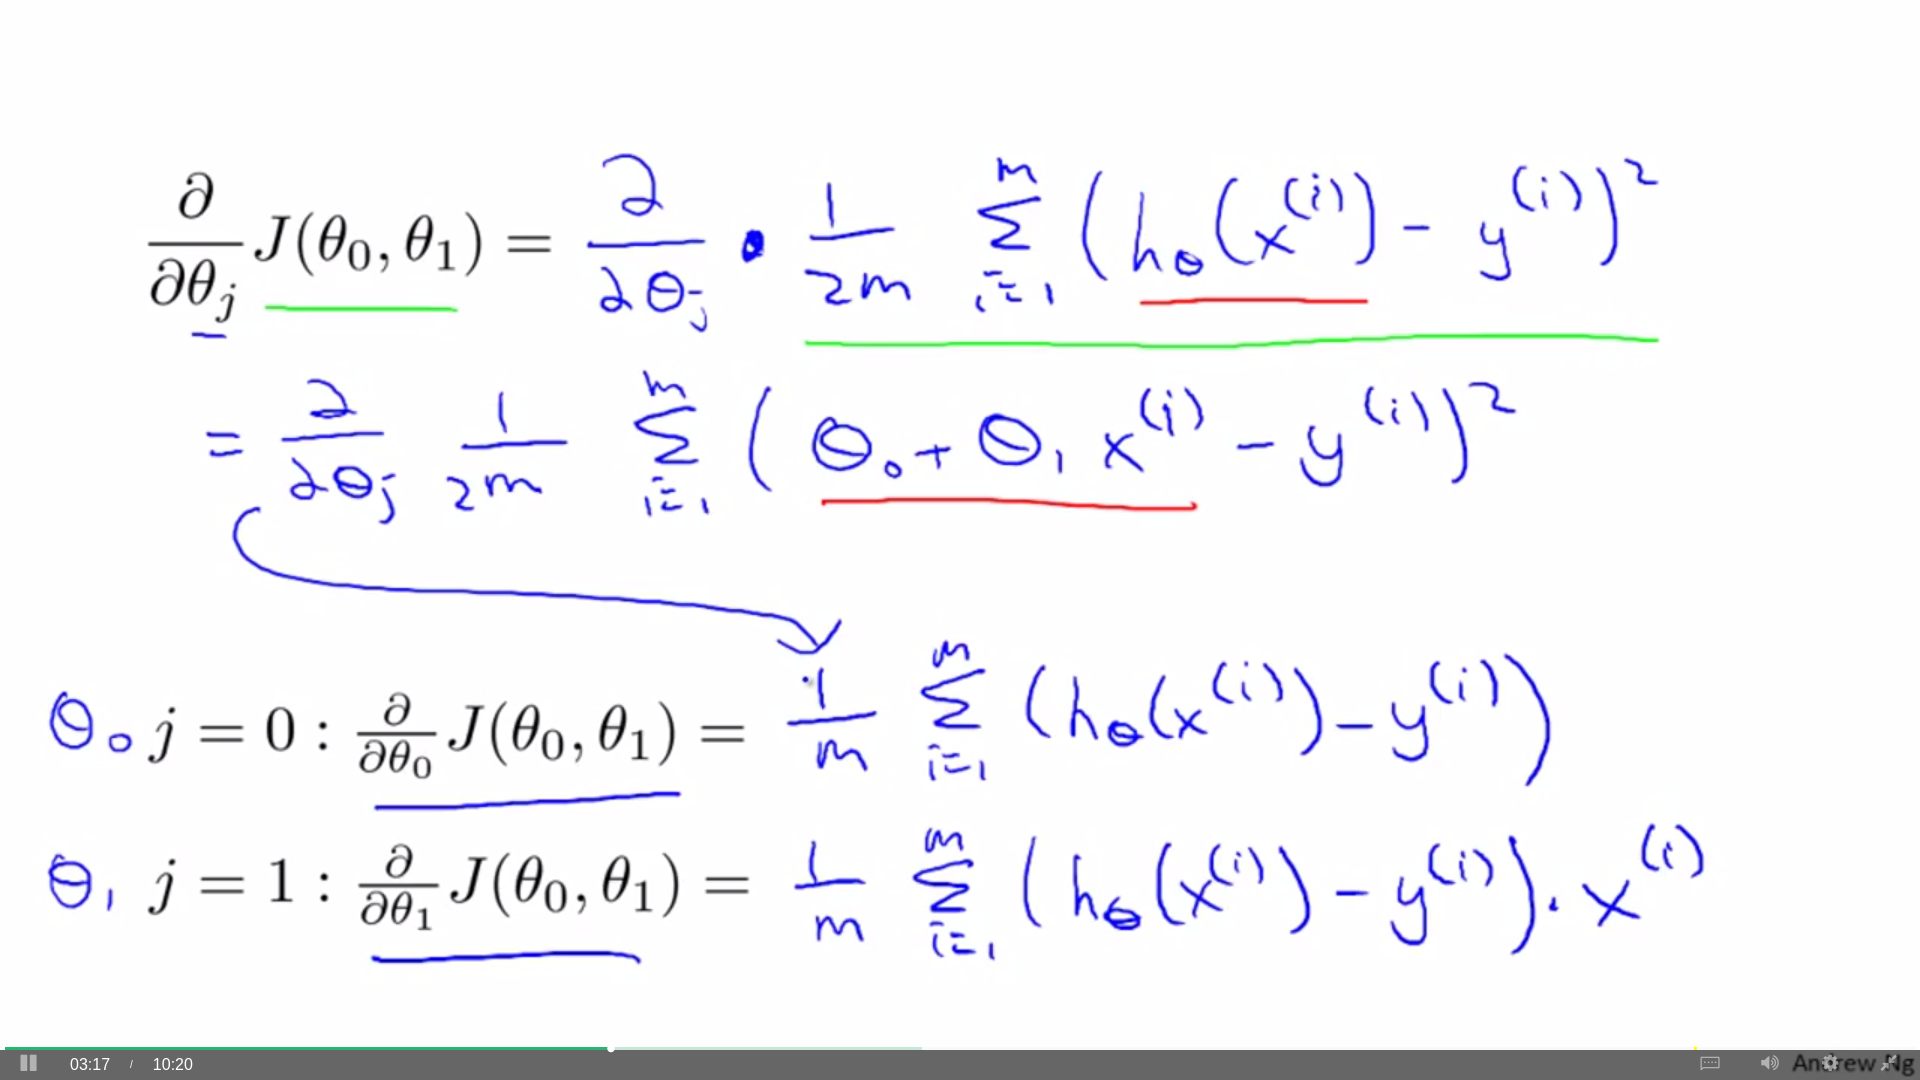 ∂/∂θⱼ J(θ₀, θ₁) = ∂/∂θⱼ · 1/2m Σᵢ₌₁ᵐ (h_θ(x⁽ⁱ⁾) − y⁽ⁱ⁾)²
= ∂/∂θⱼ 1/2m Σᵢ₌₁ᵐ (θ₀ + θ₁ x⁽ⁱ⁾ − y⁽ⁱ⁾)²
θ₀ j = 0 : ∂/∂θ₀ J(θ₀, θ₁) = 1/m Σᵢ₌₁ᵐ (h_θ(x⁽ⁱ⁾) − y⁽ⁱ⁾)
θ₁ j = 1 : ∂/∂θ₁ J(θ₀, θ₁) = 1/m Σᵢ₌₁ᵐ (h_θ(x⁽ⁱ⁾) − y⁽ⁱ⁾) · x⁽ⁱ⁾
03:17 / 10:20
Andrew Ng